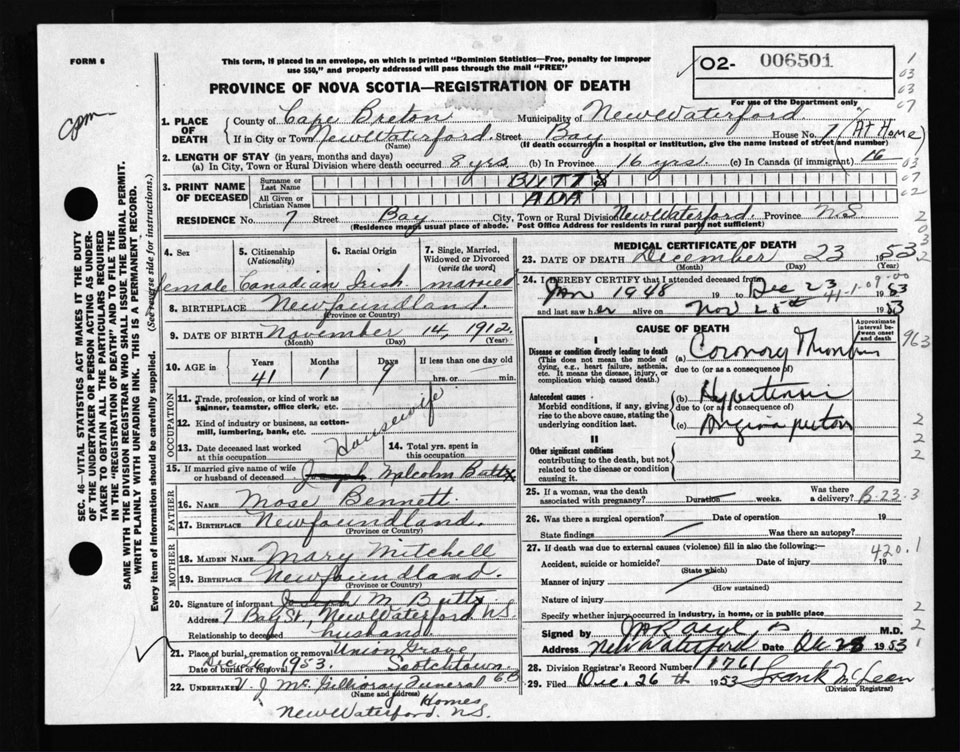 FORM 6
This form, if placed in an envelope, on which is printed "Dominion Statistics—Free, penalty for improper
use $50," and properly addressed will pass through the mail "FREE"
O2- 006501
PROVINCE OF NOVA SCOTIA—REGISTRATION OF DEATH
For use of the Department only
cpm
1. PLACE OF DEATH
County of Cape Breton Municipality of New Waterford
If in City or Town New Waterford. Street Bay House No. 7 (At Home)
(Name) (If death occurred in a hospital or institution, give the name instead of street and number)
2. LENGTH OF STAY (in years, months and days)
(a) In City, Town or Rural Division where death occurred 8 yrs. (b) In Province 16 yrs. (c) In Canada (if immigrant) 16
3. PRINT NAME OF DECEASED
Surname or Last Name
All Given or Christian Names ADA
RESIDENCE No. 7 Street Bay City, Town or Rural Division New Waterford. Province N.S.
(Residence means usual place of abode. Post Office Address for residents in rural parts not sufficient)
4. Sex
female
5. Citizenship (Nationality)
Canadian
6. Racial Origin
Irish
7. Single, Married, Widowed or Divorced (write the word)
married
8. BIRTHPLACE Newfoundland.
(Province or Country)
9. DATE OF BIRTH November 14, 1912.
(Month) (Day) (Year)
10. AGE in Years Months Days If less than one day old
41 1 9 hrs. or min.
OCCUPATION
11. Trade, profession, or kind of work as spinner, teamster, office clerk, etc.
Housewife
12. Kind of industry or business, as cotton-mill, lumbering, bank, etc.
13. Date deceased last worked at this occupation
14. Total yrs. spent in this occupation
15. If married give name of wife or husband of deceased Joseph Malcolm Butt
FATHER
16. NAME Mose Bennett.
17. BIRTHPLACE Newfoundland.
(Province or Country)
MOTHER
18. MAIDEN NAME Mary Mitchell
19. BIRTHPLACE Newfoundland.
(Province or Country)
20. Signature of informant Joseph M Butt
Address 7 Bay St., New Waterford N.S.
Relationship to deceased husband
21. Place of burial, cremation or removal Union Grove Scotchtown.
Date of burial or removal Dec 26 1953.
22. UNDERTAKER V. J. McGillivray Funeral Homes
(Name and address)
New Waterford, N.S.
MEDICAL CERTIFICATE OF DEATH
23. DATE OF DEATH December 23 1953
(Month) (Day) (Year)
24. I HEREBY CERTIFY that I attended deceased from
Jan 1948 19 to Dec 23 1953
and last saw her alive on Nov 25th 1953
CAUSE OF DEATH
Approximate interval between onset and death
I
Disease or condition directly leading to death
(This does not mean the mode of dying, e.g., heart failure, asthenia, etc. It means the disease, injury, or complication which caused death.)
(a) Coronary
due to (or as a consequence of)
Antecedent causes
Morbid conditions, if any, giving rise to the above cause, stating the underlying condition last.
(b)
due to (or as a consequence of)
(c) Angina pectoris
II
Other significant conditions
contributing to the death, but not related to the disease or condition causing it.
25. If a woman, was the death associated with pregnancy? Duration weeks. Was there a delivery? B-23.3
26. Was there a surgical operation? Date of operation 19
State findings Was there an autopsy?
27. If death was due to external causes (violence) fill in also the following:— 420.1
Accident, suicide or homicide? Date of injury 19
(State which)
Manner of injury
(How sustained)
Nature of injury
Specify whether injury occurred in industry, in home, or in public place
Signed by M.D.
Address New Waterford Date Dec 28 1953
28. Division Registrar's Record Number 1761
29. Filed Dec. 26th 1953 Frank McLean
(Division Registrar)
SEC. 46 VITAL STATISTICS ACT MAKES IT THE DUTY
OF THE UNDERTAKER OR PERSON ACTING AS UNDER-
TAKER TO OBTAIN ALL THE PARTICULARS REQUIRED
IN THE "REGISTRATION OF DEATH" AND TO FILE THE
SAME WITH THE DIVISION REGISTRAR WHO SHALL ISSUE THE BURIAL PERMIT.
WRITE PLAINLY WITH UNFADING INK. THIS IS A PERMANENT RECORD.
Every item of Information should be carefully supplied. (See reverse side for instructions.)
963